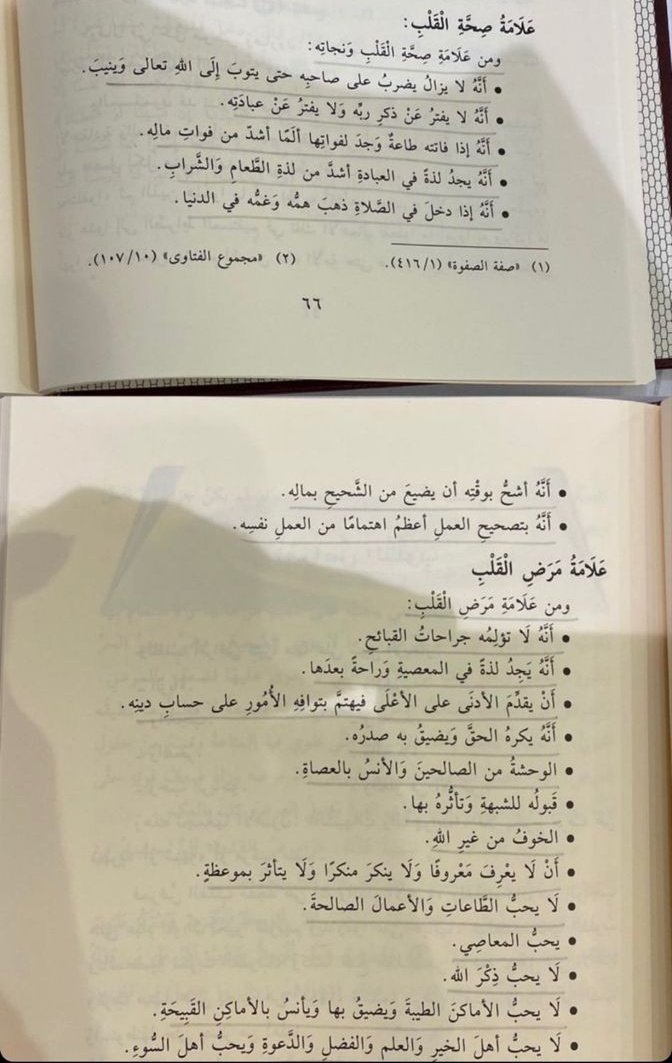 عَلَامَةُ صِحَّةِ الْقَلْبِ:
ومن عَلَامَةِ صِحَّةِ الْقَلْبِ وَنجاتِه:
• أَنَّهُ لا يزالُ يضربُ على صاحبِه حتى يتوبَ إِلَى اللهِ تعالى وَينيبَ.
• أَنَّهُ لا يفترُ عَنْ ذكرِ ربِّه وَلا يفترُ عَنْ عبادَتِه.
• أَنَّهُ إذا فاتته طاعةٌ وَجدَ لفواتِها ألَمًا أشدَّ من فواتِ مالِه.
• أَنَّهُ يجدُ لذةً في العبادةِ أشدَّ من لذةِ الطَّعامِ وَالشَّرابِ.
• أَنَّهُ إذا دخلَ في الصَّلاةِ ذهبَ همُّه وَغمُّه في الدنيا.
(١) «صفة الصفوة» (٤١٦/١). (٢) «مجموع الفتاوى» (١٠٧/١٠).
٦٦
• أَنَّهُ أشحُّ بوقْتِه أن يضيعَ من الشَّحيحِ بمالِه.
• أَنَّهُ بتصحيحِ العملِ أعظمُ اهتمامًا من العملِ نفسِه.
عَلَامَةُ مَرَضِ الْقَلْبِ
ومن عَلَامَةِ مَرَضِ الْقَلْبِ:
• أَنَّهُ لَا تؤلِمُه جراحاتُ القبائحِ.
• أَنَّهُ يَجِدُ لذةً في المعصيةِ وَراحةً بعدَها.
• أَنْ يقدِّمَ الأدنَى على الأعْلَى فيهتمَّ بتوافِهِ الأُمُورِ على حسابِ دينِه.
• أَنَّهُ يكرهُ الحقَّ وَيضيقُ به صدرُه.
• الوحشةُ من الصالحينَ وَالأنسُ بالعصاةِ.
• قَبولُه للشبهةِ وَتأثُّرهُ بها.
• الخوفُ من غيرِ اللهِ.
• أَنْ لَا يعْرِفَ مَعْروفًا وَلَا ينكرَ منكرًا وَلَا يتأثرَ بموعظةٍ.
• لَا يحبُّ الطَّاعاتِ وَالأعمالَ الصالحةَ.
• يحبُّ المعاصِي.
• لَا يحبُّ ذِكْرَ الله.
• لَا يحبُّ الأماكنَ الطيبةَ وَيضيقُ بها وَيأنسُ بالأماكنِ القَبِيحَةِ.
• لَا يحبُّ أهلَ الخيرِ وَالعلمِ وَالفضلِ وَالدَّعوةِ وَيحبُّ أهلَ السُّوءِ.